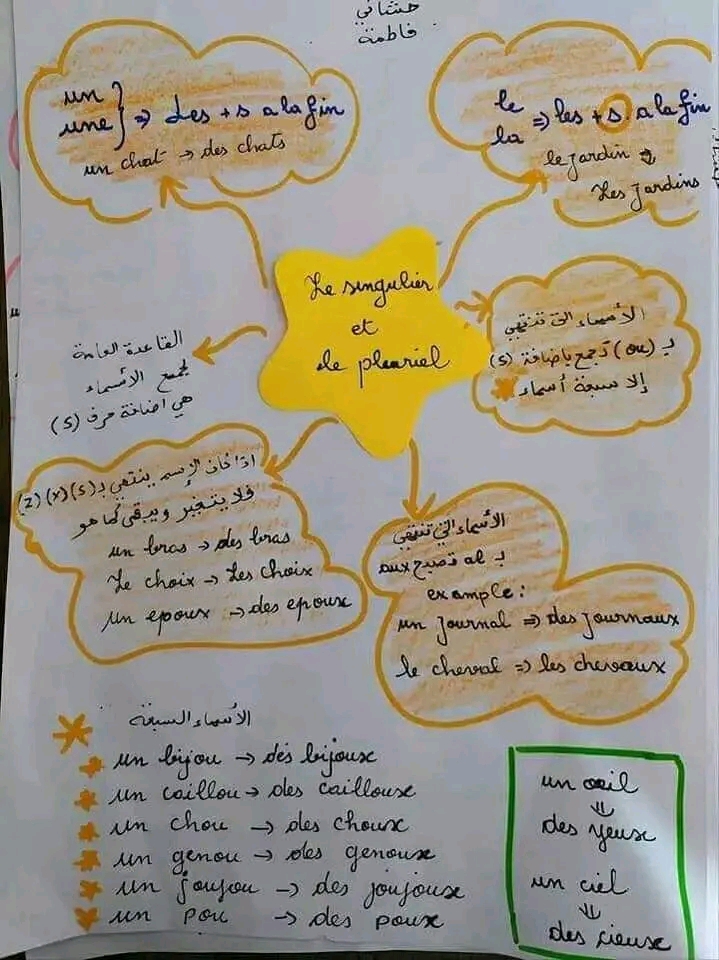 حشاني
فاطمة
un
une } => Les + s a la fin
un chat → des chats
le
la => les + s a la fin
le jardin →
Les jardins
Le singulier
et
le pluriel
الأسماء التي تنتهي
بـ (ou) تجمع بإضافة (s)
إلا سبعة أسماء
القاعدة العامة
لجمع الأسماء
هي اضافة حرف (s)
اذا كان الإسم ينتهي بـ (s) (x) (z)
فلا يتغير ويبقى كما هو
un bras → des bras
Le choix → Les choix
Un epoux → des epoux
الأسماء التي تنتهي
بـ al تصبح aux
example:
un journal => des journaux
le cheval => les chevaux
الأسماء السبعة
un bijou → des bijoux
un caillou → des cailloux
un chou → des choux
un genou → des genoux
un joujou → des joujoux
un pou → des poux
un œil
⇓
des yeux
un ciel
⇓
des cieux